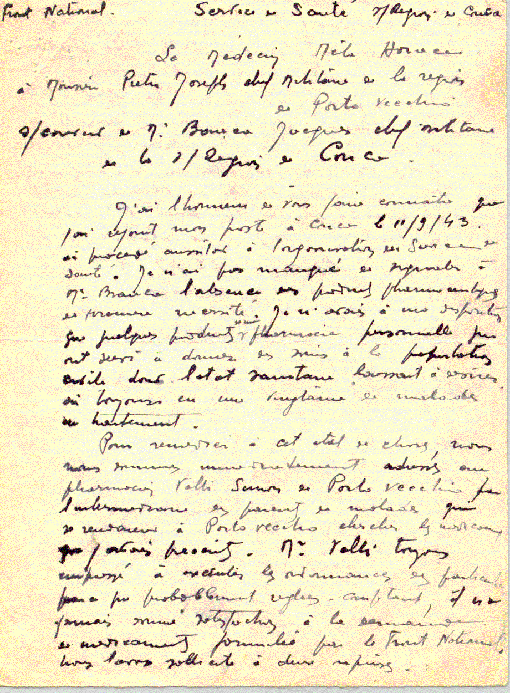 Front National. Service de Santé s/Région de Conca
Le Médecin Horace
à Monsieur Pietri Joseph chef militaire de la région
de Porto Vecchio
s/couvert de Mr Branca Jacques chef militaire
de la s/Région de Conca.
J'ai l'honneur de vous faire connaître que
j'ai rejoint mon poste à Conca le 11/9/43.
ai procédé aussitôt à l'organisation du Service de
Santé. Je n'ai pas manqué de signaler à
Mr Branca l'absence de produits pharmaceutiques
de première nécessité. Je n'avais à ma disposition
que quelques produits pharmacie personnelle qui
ont servi à donner des soins à la population
civile dont l'état sanitaire laissant à désirer
ai toujours eu une vingtaine de malades
en traitement.
Pour remédier à cet état de chose, nous
nous sommes immédiatement adressés au
pharmacien Valli de Porto Vecchio par
l'intermédiaire de parents de malades qui
se rendaient à Porto Vecchio chercher les médicaments
que j'avais prescrits. Mr Valli toujours
empressé à exécuter les ordonnances
probablement réglées comptant, il n'a
jamais donné satisfaction à la demande
de médicaments formulée par le Front National,
nous l'avons sollicité à deux reprises.